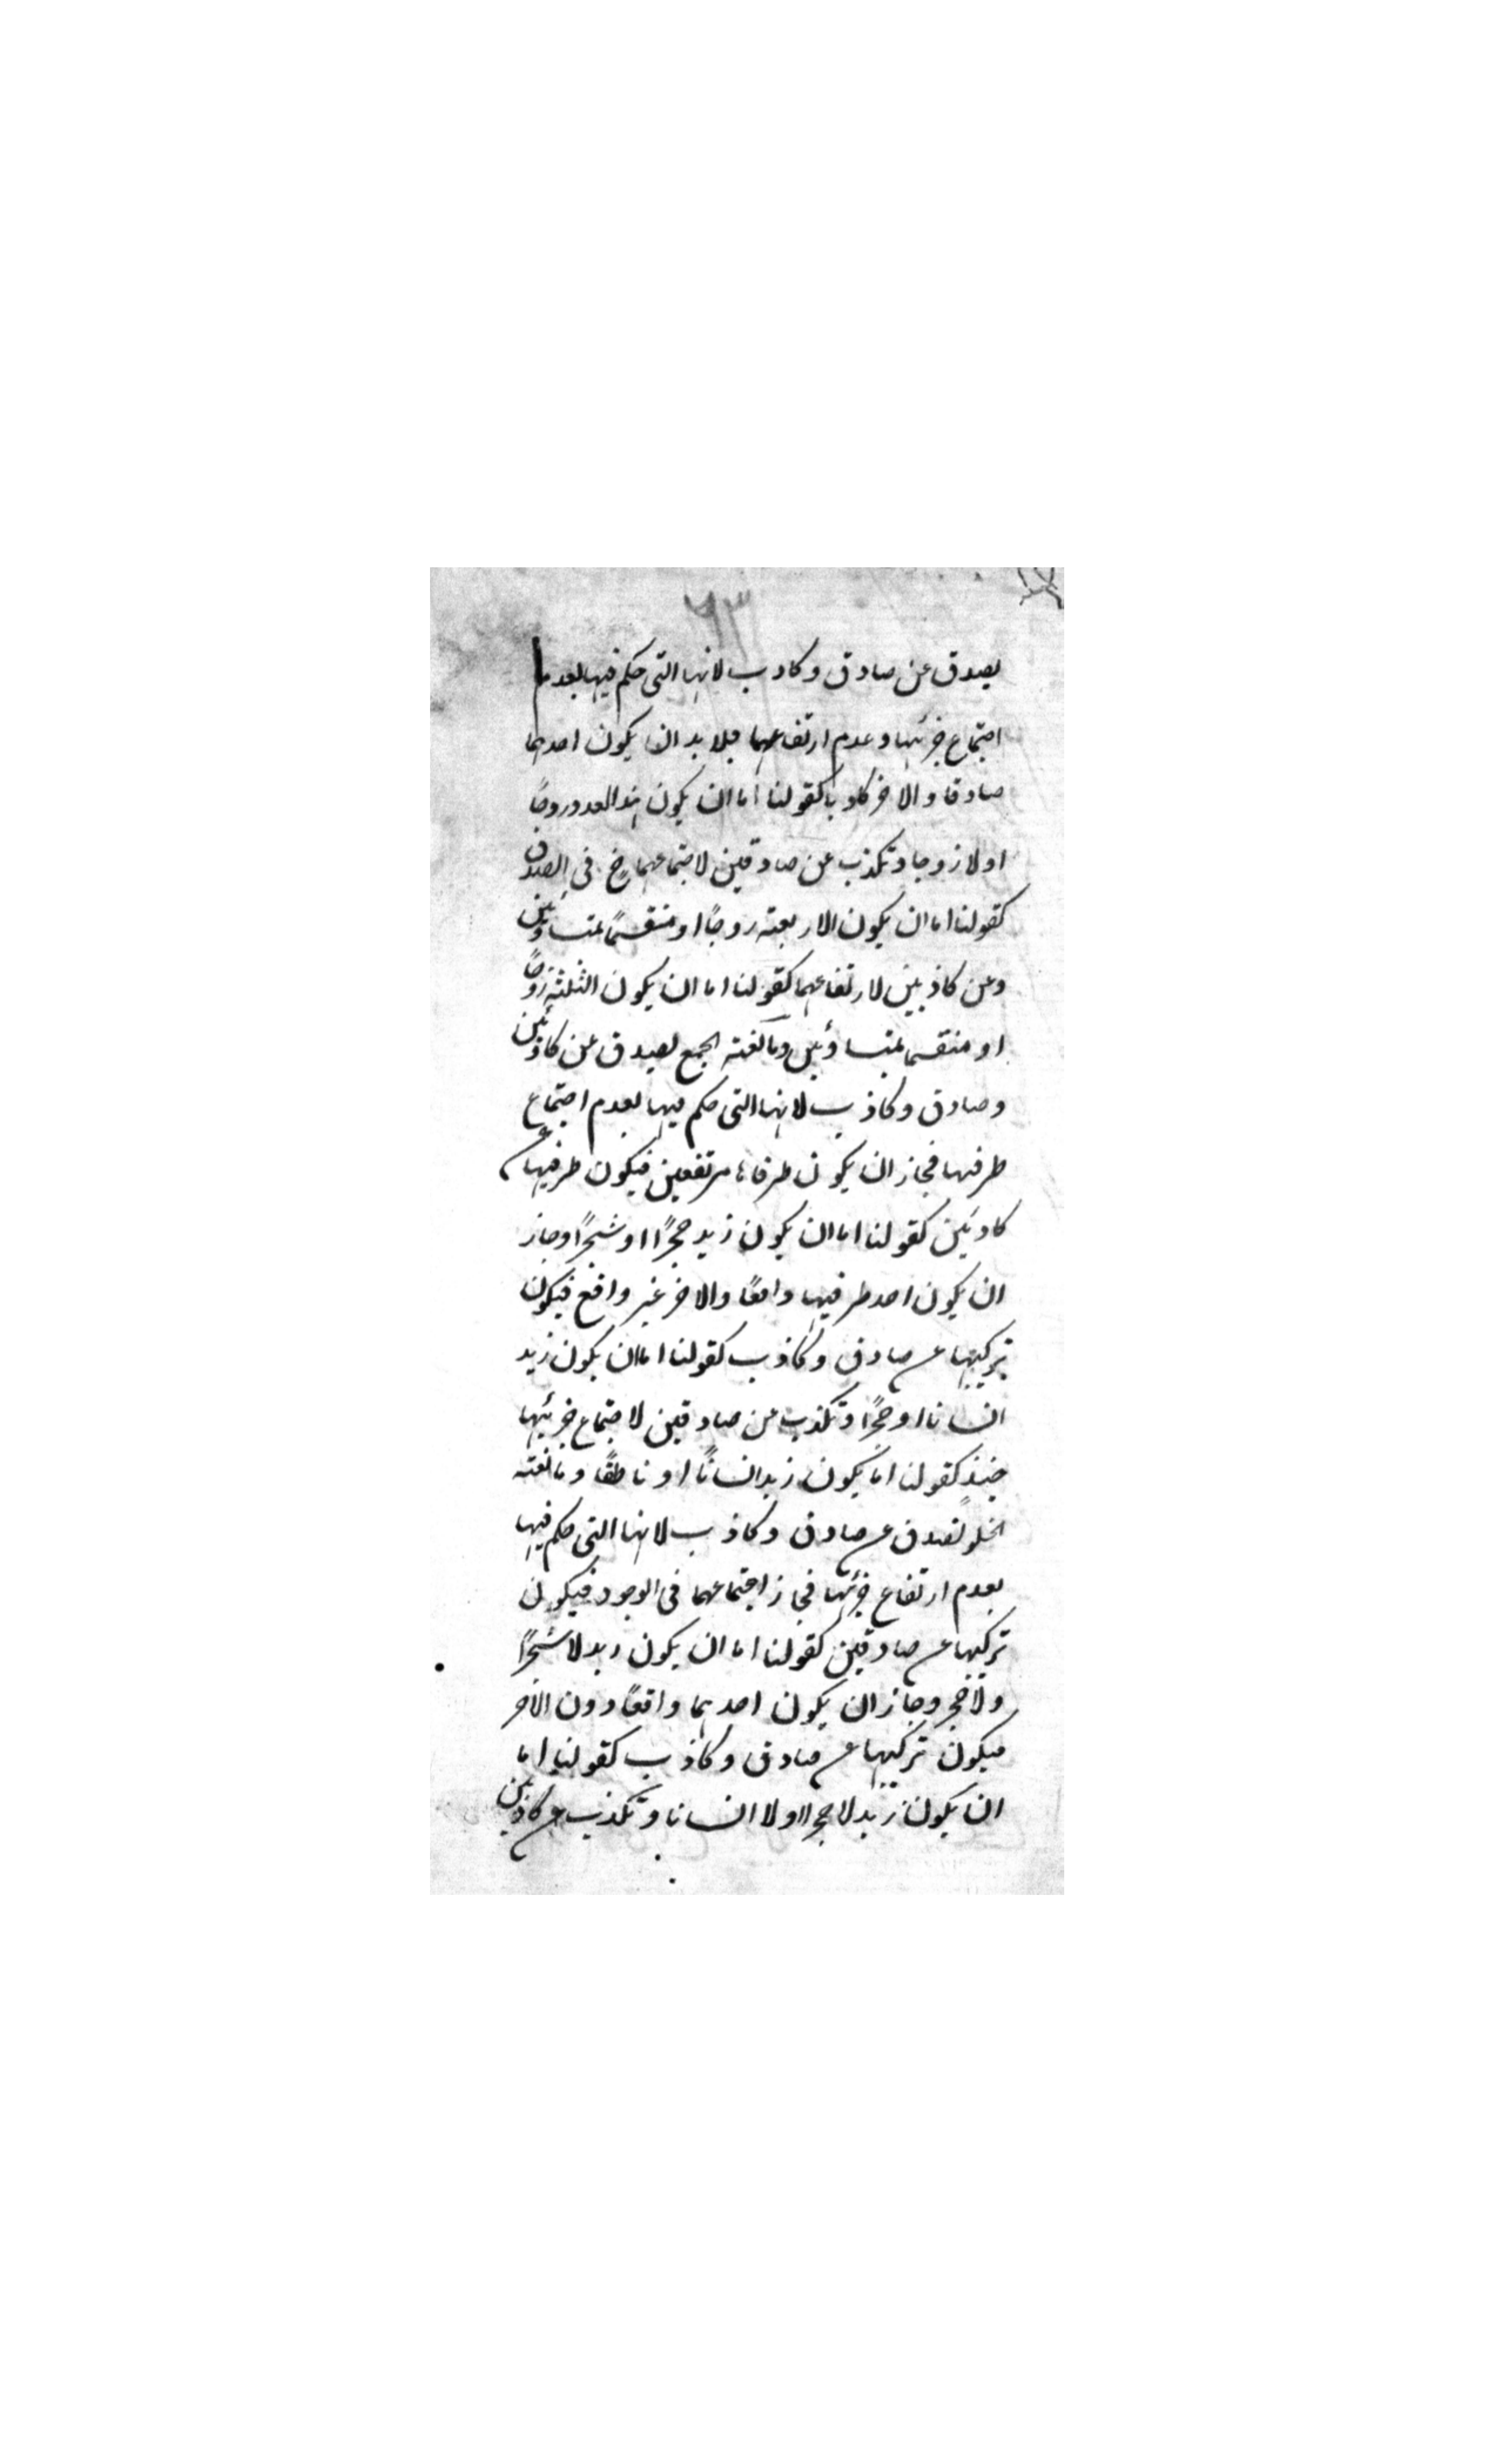 ٦٣
يصدق عن صادق وكاذب لانها التى حكم فيها بعدم
اجتماع جزئيها وعدم ارتفاعهما فلا بد ان يكون احدهما
صادقا والاخر كاذبا كقولنا اما ان يكون هذا العدد زوجًا
او لا زوجا وتكذب عن صادقين لاجتماعهما ح فى الصدق
كقولنا اما ان يكون الاربعة زوجًا او منقسمًا بمتساويين
وعن كاذبين لارتفاعهما كقولنا اما ان يكون الثلثة زوجًا
او منقسما بمتساويين ومانعة الجمع يصدق عن كاذبين
وصادق وكاذب لانها التى حكم فيها بعدم اجتماع
طرفيها فجاز ان يكون طرفاها مرتفعين فيكون طرفيها
كاذبين كقولنا اما ان يكون زيد حجرًا او شجرًا وجاز
ان يكون احد طرفيها واقعًا والاخر غير واقع فيكون
تركيبها عن صادق وكاذب كقولنا اما ان يكون زيد
انسانا او حجرًا وتكذب عن صادقين لاجتماع جزئيها
حينئذٍ كقولنا اما يكون زيد انسانًا او ناطقًا ومانعة
الخلو تصدق عن صادق وكاذب لانها التى حكم فيها
بعدم ارتفاع جزئيها فجاز اجتماعهما فى الوجود فيكون
تركيبها عن صادقين كقولنا اما ان يكون زيد لا شجرًا
ولا حجر وجاز ان يكون احدهما واقعًا دون الاخر
فيكون تركيبها عن صادق وكاذب كقولنا اما
ان يكون زيد لا حجرا او لا انسانا وتكذب عن كاذبين